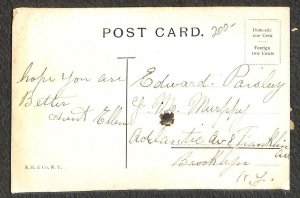 POST CARD.
200-
Domestic
one Cent
Foreign
two Cents
hope you are
Better
Aunt Ellen
Edward Parsley
Adelantic Av & Franklin
Av
Brooklyn
N.Y.
K. B. & Co., N. Y.